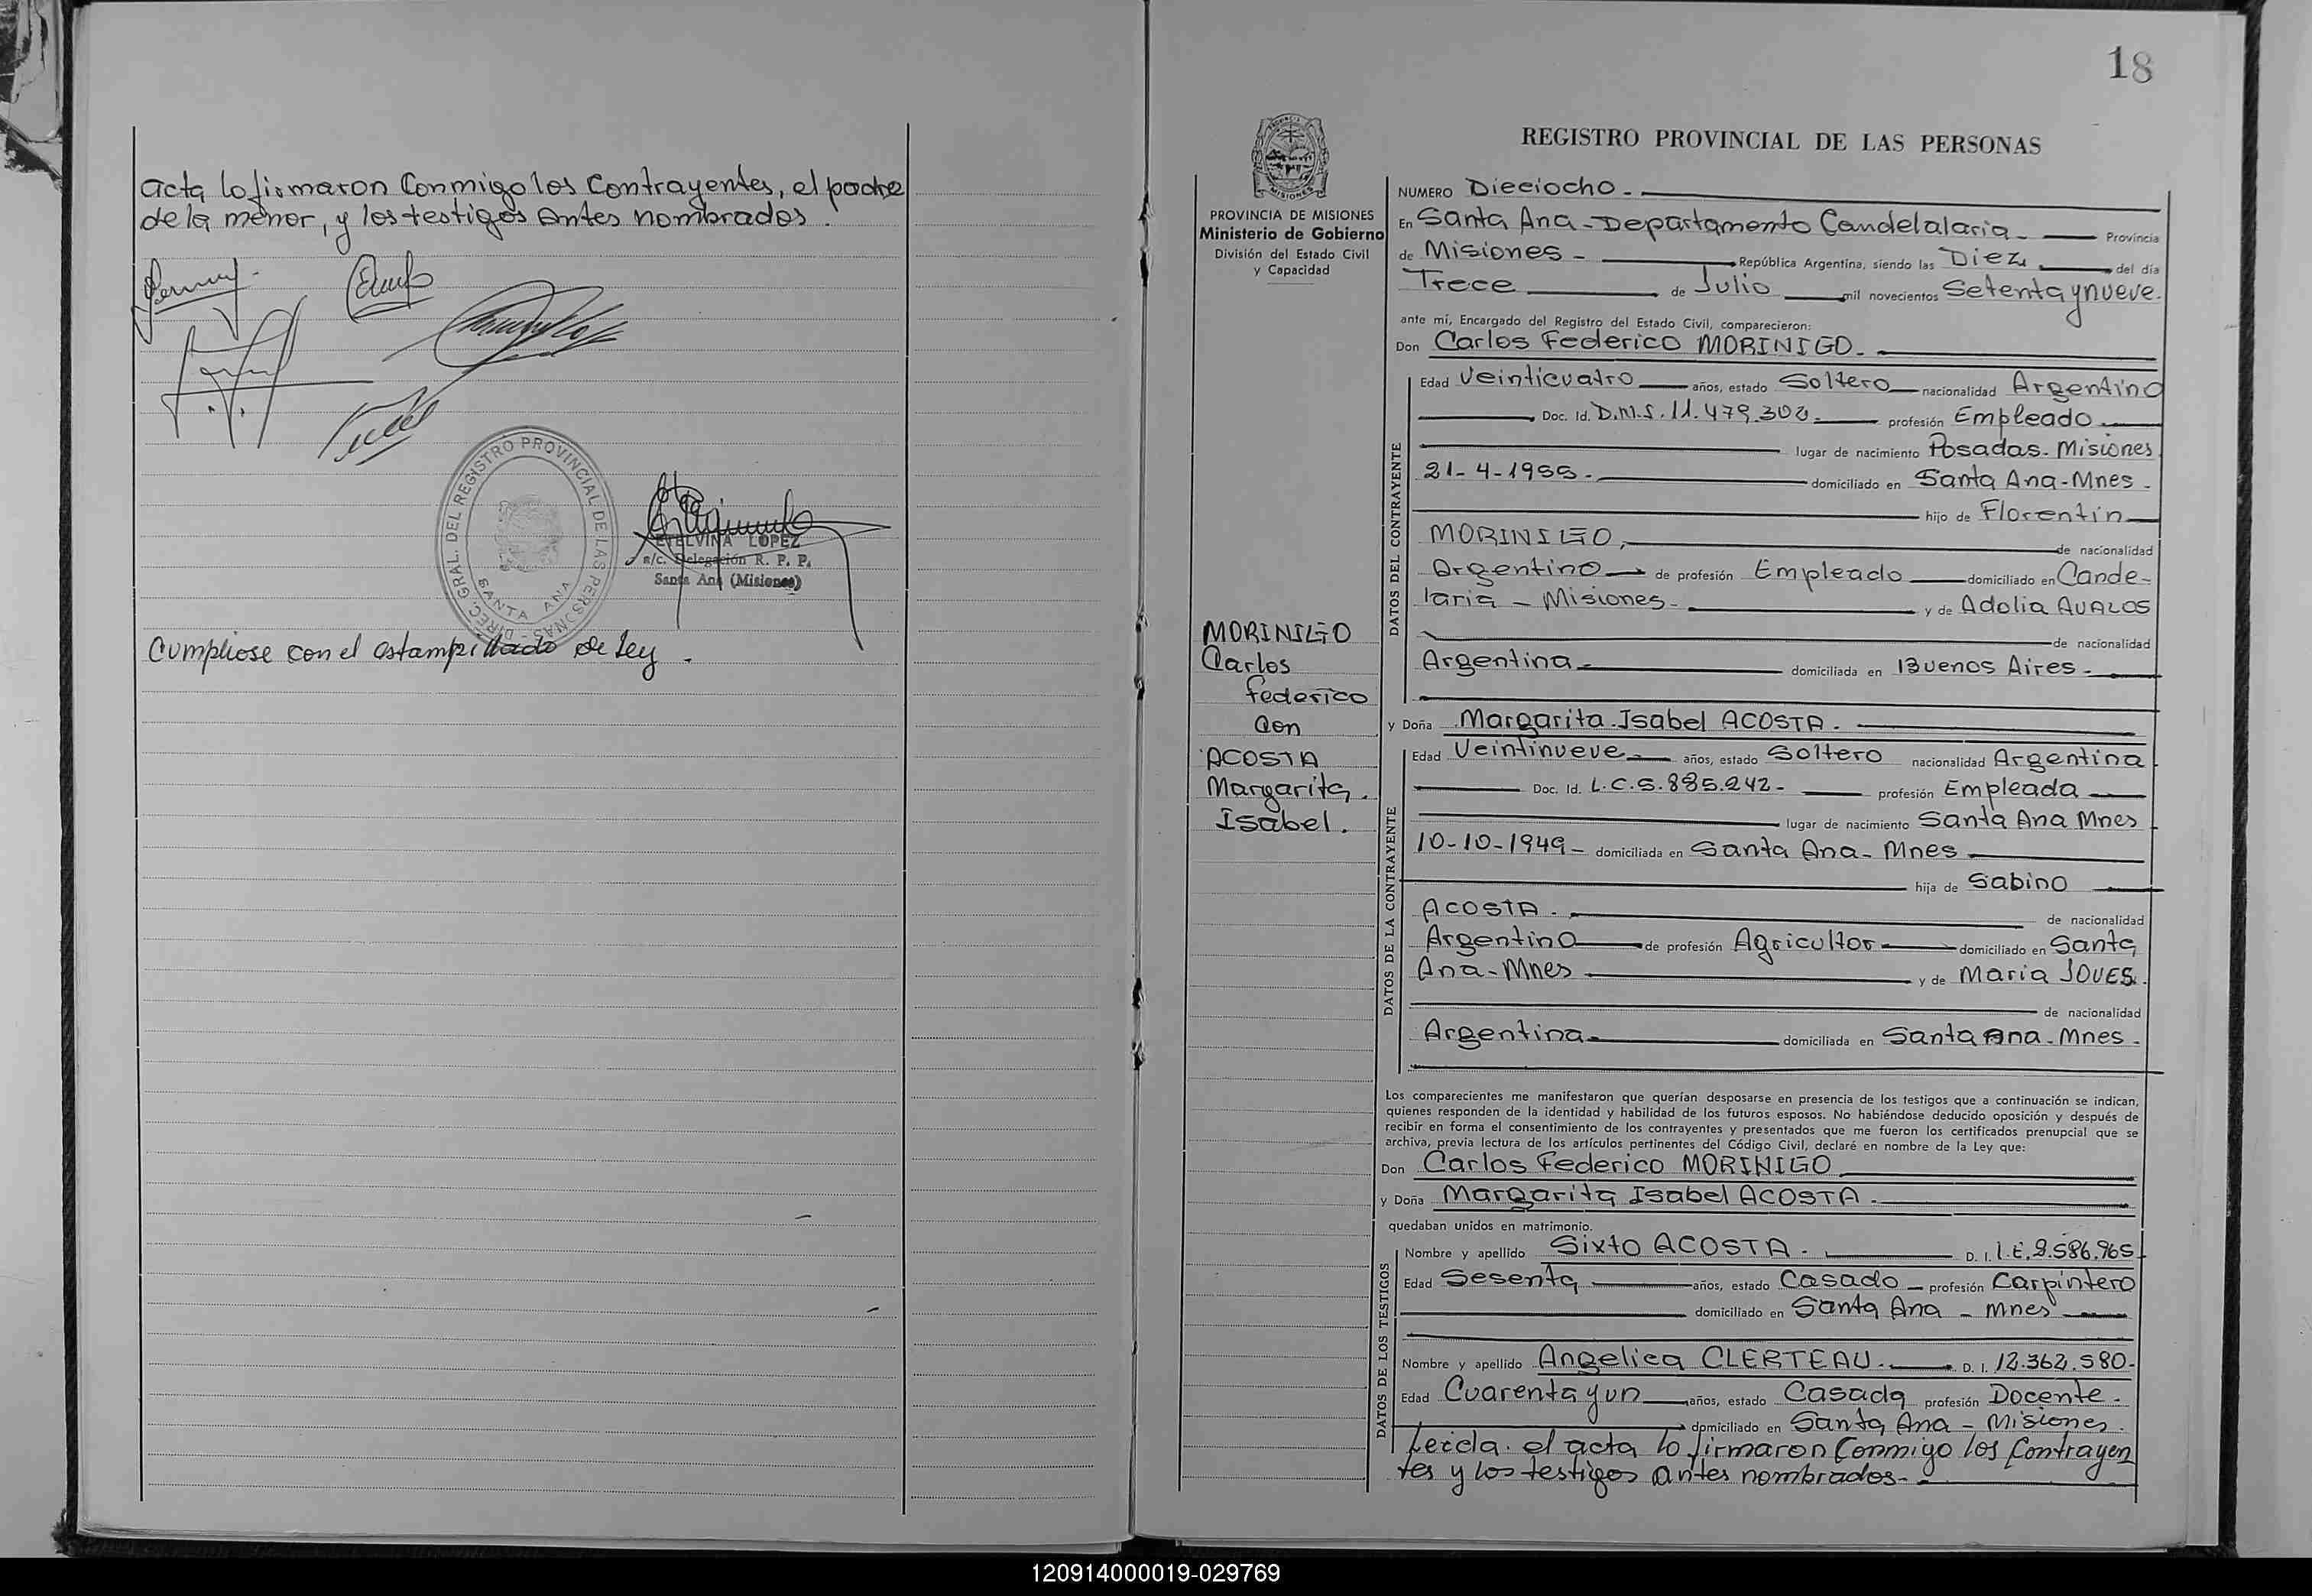 acta lo firmaron Conmigo los Contrayentes, el padre
de la menor, y los testigos antes nombrados.
DIREC. GRAL. DEL REGISTRO PROVINCIAL DE LAS PERSONAS -
SANTA ANA
ETELVINA LOPEZ
a/c. Delegación R. P. P.
Santa Ana (Misiones)
Cumpliose con el estampillado de Ley.
18
REGISTRO PROVINCIAL DE LAS PERSONAS
PROVINCIA DE MISIONES
Ministerio de Gobierno
División del Estado Civil
y Capacidad
MORINIGO
Carlos
Federico
Con
ACOSTA
Margarita.
Isabel.
NUMERO Dieciocho.-
En Santa Ana - Departamento Candelalaria - Provincia
de Misiones - República Argentina, siendo las Diez del día
Trece de Julio mil novecientos Setenta y nueve.
ante mí, Encargado del Registro del Estado Civil, comparecieron:
Don Carlos Federico MORINIGO.-
DATOS DEL CONTRAYENTE
Edad Veinticuatro años, estado Soltero nacionalidad Argentino
Doc. Id. D.M.S. 11.479.302.- profesión Empleado.-
lugar de nacimiento Posadas - Misiones
21-4-1955.- domiciliado en Santa Ana - Mnes -
hijo de Florentín
MORINIGO, de nacionalidad
Argentino de profesión Empleado domiciliado en Cande-
laria - Misiones - y de Adolia AVALOS
de nacionalidad
Argentina - domiciliada en Buenos Aires.-
y Doña Margarita Isabel ACOSTA.-
DATOS DE LA CONTRAYENTE
Edad Veintinueve años, estado Soltero nacionalidad Argentina
Doc. Id. L.C.5.885.242- profesión Empleada
lugar de nacimiento Santa Ana Mnes
10-10-1949- domiciliada en Santa Ana - Mnes
hija de Sabino
ACOSTA.- de nacionalidad
Argentino de profesión Agricultor domiciliado en Santa
Ana - Mnes y de Maria JOVES.
de nacionalidad
Argentina - domiciliada en Santa Ana - Mnes -
Los comparecientes me manifestaron que querían desposarse en presencia de los testigos que a continuación se indican,
quienes responden de la identidad y habilidad de los futuros esposos. No habiéndose deducido oposición y después de
recibir en forma el consentimiento de los contrayentes y presentados que me fueron los certificados prenupcial que se
archiva, previa lectura de los artículos pertinentes del Código Civil, declaré en nombre de la Ley que:
Don Carlos Federico MORINIGO
y Doña Margarita Isabel ACOSTA.-
quedaban unidos en matrimonio.
DATOS DE LOS TESTIGOS
Nombre y apellido Sixto ACOSTA.- D. I. L.E.2.586.965
Edad Sesenta años, estado Casado profesión Carpintero
domiciliado en Santa Ana - Mnes
Nombre y apellido Angelica CLERTEAU.- D. I. 12.362.580-
Edad Cuarenta y un años, estado Casada profesión Docente.
domiciliado en Santa Ana - Misiones.
Leida el acta lo firmaron Conmigo los Contrayen
tes y los testigos antes nombrados.-
120914000019-029769